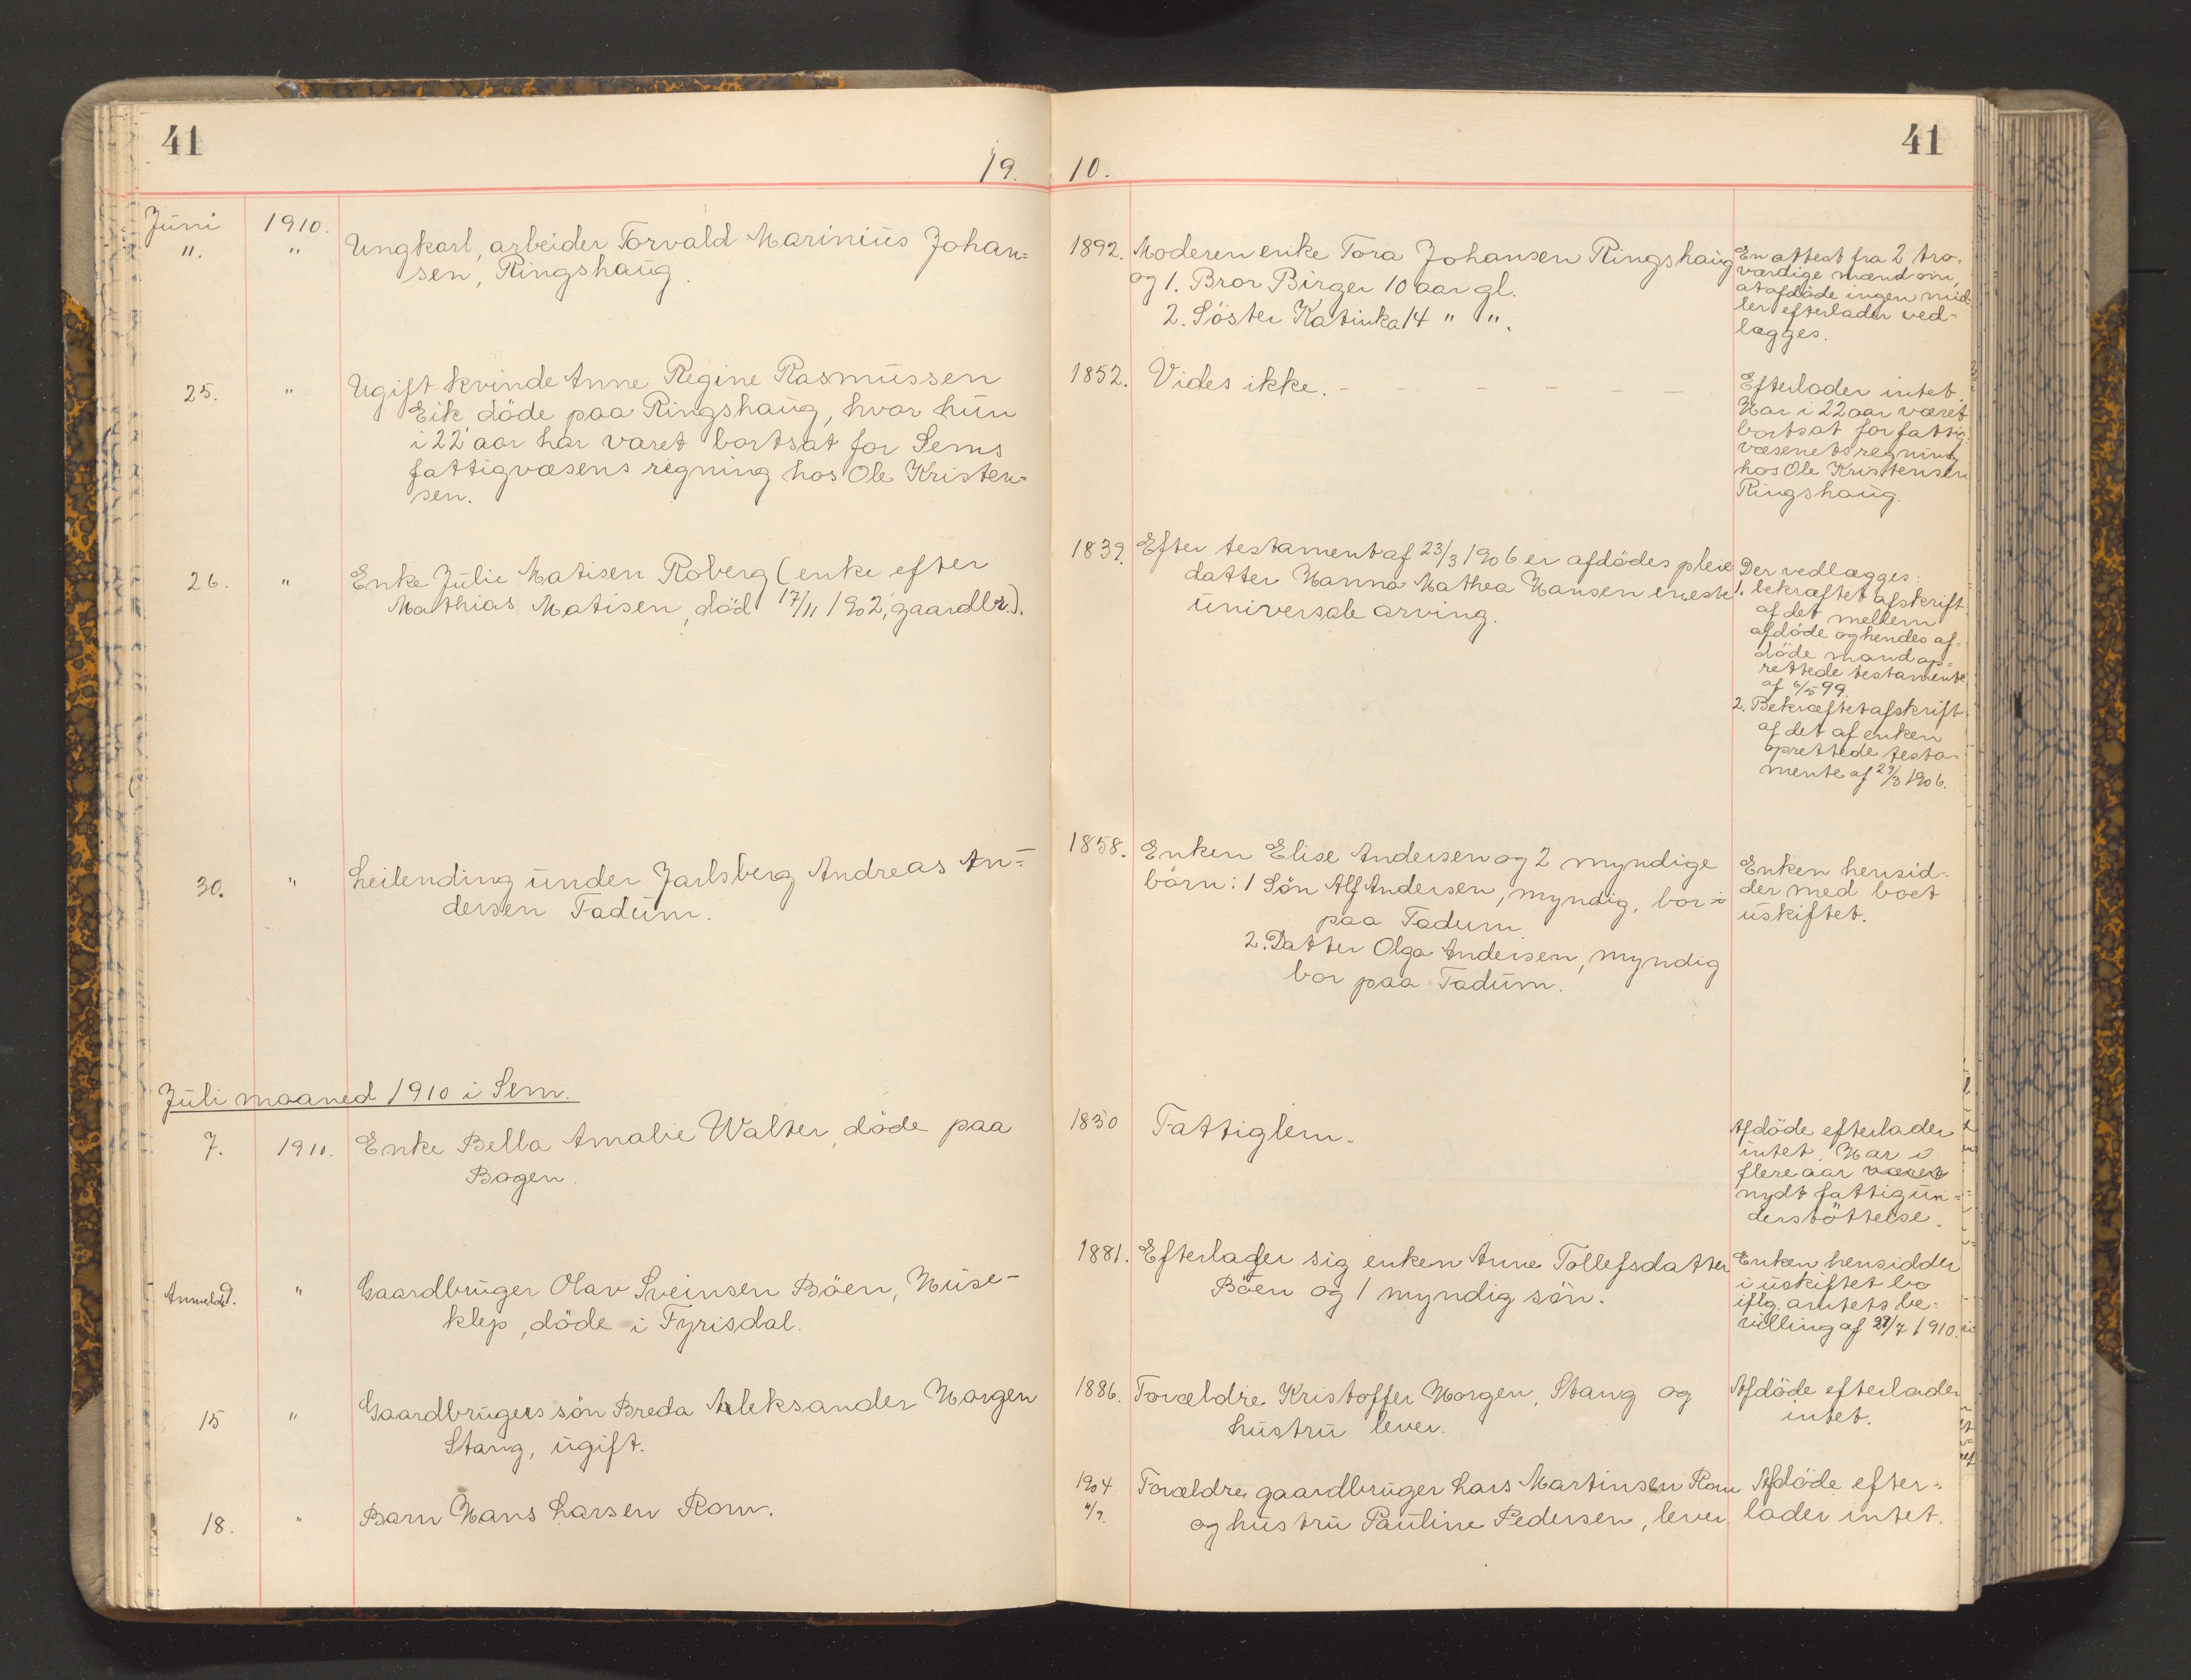 41
19.
Juni 1910.
11. " Ungkarl, arbeider Torvald Marinius Johan=
sen, Ringshaug.
25. " Ugift kvinde Anne Regine Rasmussen
Eik döde paa Ringshaug, hvor hun
i 22 aar har været bortsat for Sems
fattigvæsens regning hos Ole Kristen=
sen.
26. " Enke Julie Matisen Roberg (enke efter
Mathias Matisen, död 17/11 1902, gaardbr.).
30. " Leilending under Jarlsberg Andreas An=
dersen Tadum.
Juli maaned 1910 i Sem.
7. 1910. Enke Bella Amalie Walter, döde paa
Bogen.
Anmeldt. " Gaardbruger Olav Sveinsen Böen, Huse-
klep, döde i Fyrisdal.
15 " Gaardbrugers sön Breda Aleksander Horgen
Stang, ugift.
18. " Barn Hans Larsen Rom.
41
10.
1892. Moderen enke Tora Johansen Ringshaug
og 1. Bror Birger 10 aar gl.
2. Söster Katinka 14 " ".
En attest fra 2 tro=
værdige mænd om,
at afdöde ingen mid=
ler efterlader ved=
lægges.
1852. Vides ikke. - - - - - -
Efterlader intet.
Har i 22 aar været
bortsat for fattig=
væsenets regning
hos Ole Kristensen
Ringshaug.
1839. Efter testament af 23/3 1906 er afdödes pleie
datter Hanna Mathea Hansen eneste
universale arving.
Der vedlægges:
1. bekræftet afskrift
af det mellem
afdöde og hendes af=
döde mand op=
rettede testamente
af 6/5 99.
2. Bekræftet afskrift
af det af enken
oprettede testa=
mente af 29/3 1906.
1858. Enken Elise Andersen og 2 myndige
börn: 1 Sön Alf Andersen, myndig, bor
paa Tadum
2. Datter Olga Andersen, myndig
bor paa Tadum.
Enken hensid=
der med boet
uskiftet.
1830 Fattiglem.
Afdöde efterlader
intet. Har i
flere aar været
nydt fattigun=
derstöttelse.
1881. Efterlader sig enken Anne Tollefsdatter
Böen og 1 myndig sön.
Enken hensidder
i uskiftet bo
iflg. amtets be=
villing af 27/7 1910.
1886. Forældre Kristoffer Horgen, Stang og
hustru lever.
Afdöde efterlader
intet.
1904 Forældre gaardbruger Lars Martinsen Rom
4/9. og hustru Pauline Pedersen, lever.
Afdöde efter=
lader intet.